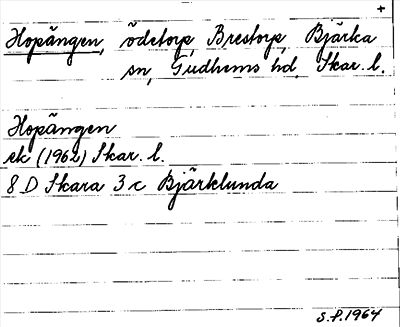 +
Hopängen, ödetorp, Brestorp, Bjärka
sn, Gudhems hd, Skar. l.
Hopängen
ek (1962) Skar. l.
8 D Skara 3 c Bjärklunda
S.P. 1964